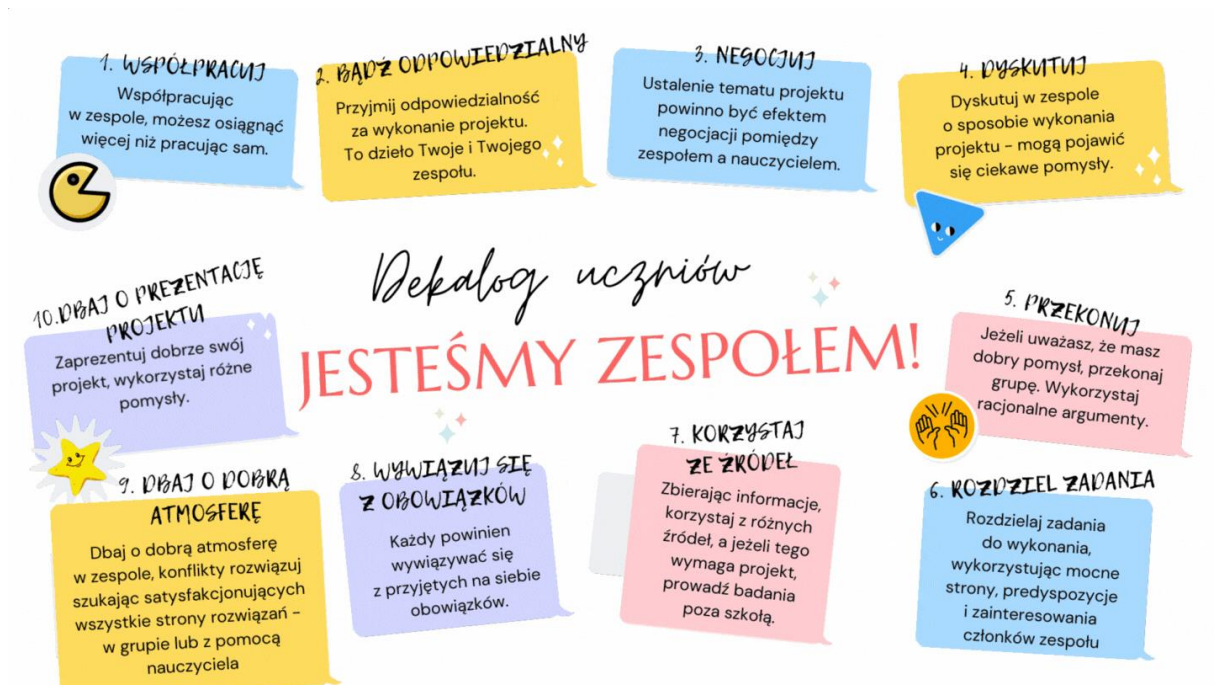 1. WSPÓŁPRACUJ
Współpracując
w zespole, możesz osiągnąć
więcej niż pracując sam.
2. BĄDŹ ODPOWIEDZIALNY
Przyjmij odpowiedzialność
za wykonanie projektu.
To dzieło Twoje i Twojego
zespołu.
3. NEGOCJUJ
Ustalenie tematu projektu
powinno być efektem
negocjacji pomiędzy
zespołem a nauczycielem.
4. DYSKUTUJ
Dyskutuj w zespole
o sposobie wykonania
projektu – mogą pojawić
się ciekawe pomysły.
Dekalog uczniów
JESTEŚMY ZESPOŁEM!
5. PRZEKONUJ
Jeżeli uważasz, że masz
dobry pomysł, przekonaj
grupę. Wykorzystaj
racjonalne argumenty.
6. ROZDZIEL ZADANIA
Rozdzielaj zadania
do wykonania,
wykorzystując mocne
strony, predyspozycje
i zainteresowania
członków zespołu
7. KORZYSTAJ
ZE ŹRÓDEŁ
Zbierając informacje,
korzystaj z różnych
źródeł, a jeżeli tego
wymaga projekt,
prowadź badania
poza szkołą.
8. WYWIĄZUJ SIĘ
Z OBOWIĄZKÓW
Każdy powinien
wywiązywać się
z przyjętych na siebie
obowiązków.
9. DBAJ O DOBRĄ
ATMOSFERĘ
Dbaj o dobrą atmosferę
w zespole, konflikty rozwiązuj
szukając satysfakcjonujących
wszystkie strony rozwiązań –
w grupie lub z pomocą
nauczyciela
10.DBAJ O PREZENTACJĘ
PROJEKTU
Zaprezentuj dobrze swój
projekt, wykorzystaj różne
pomysły.